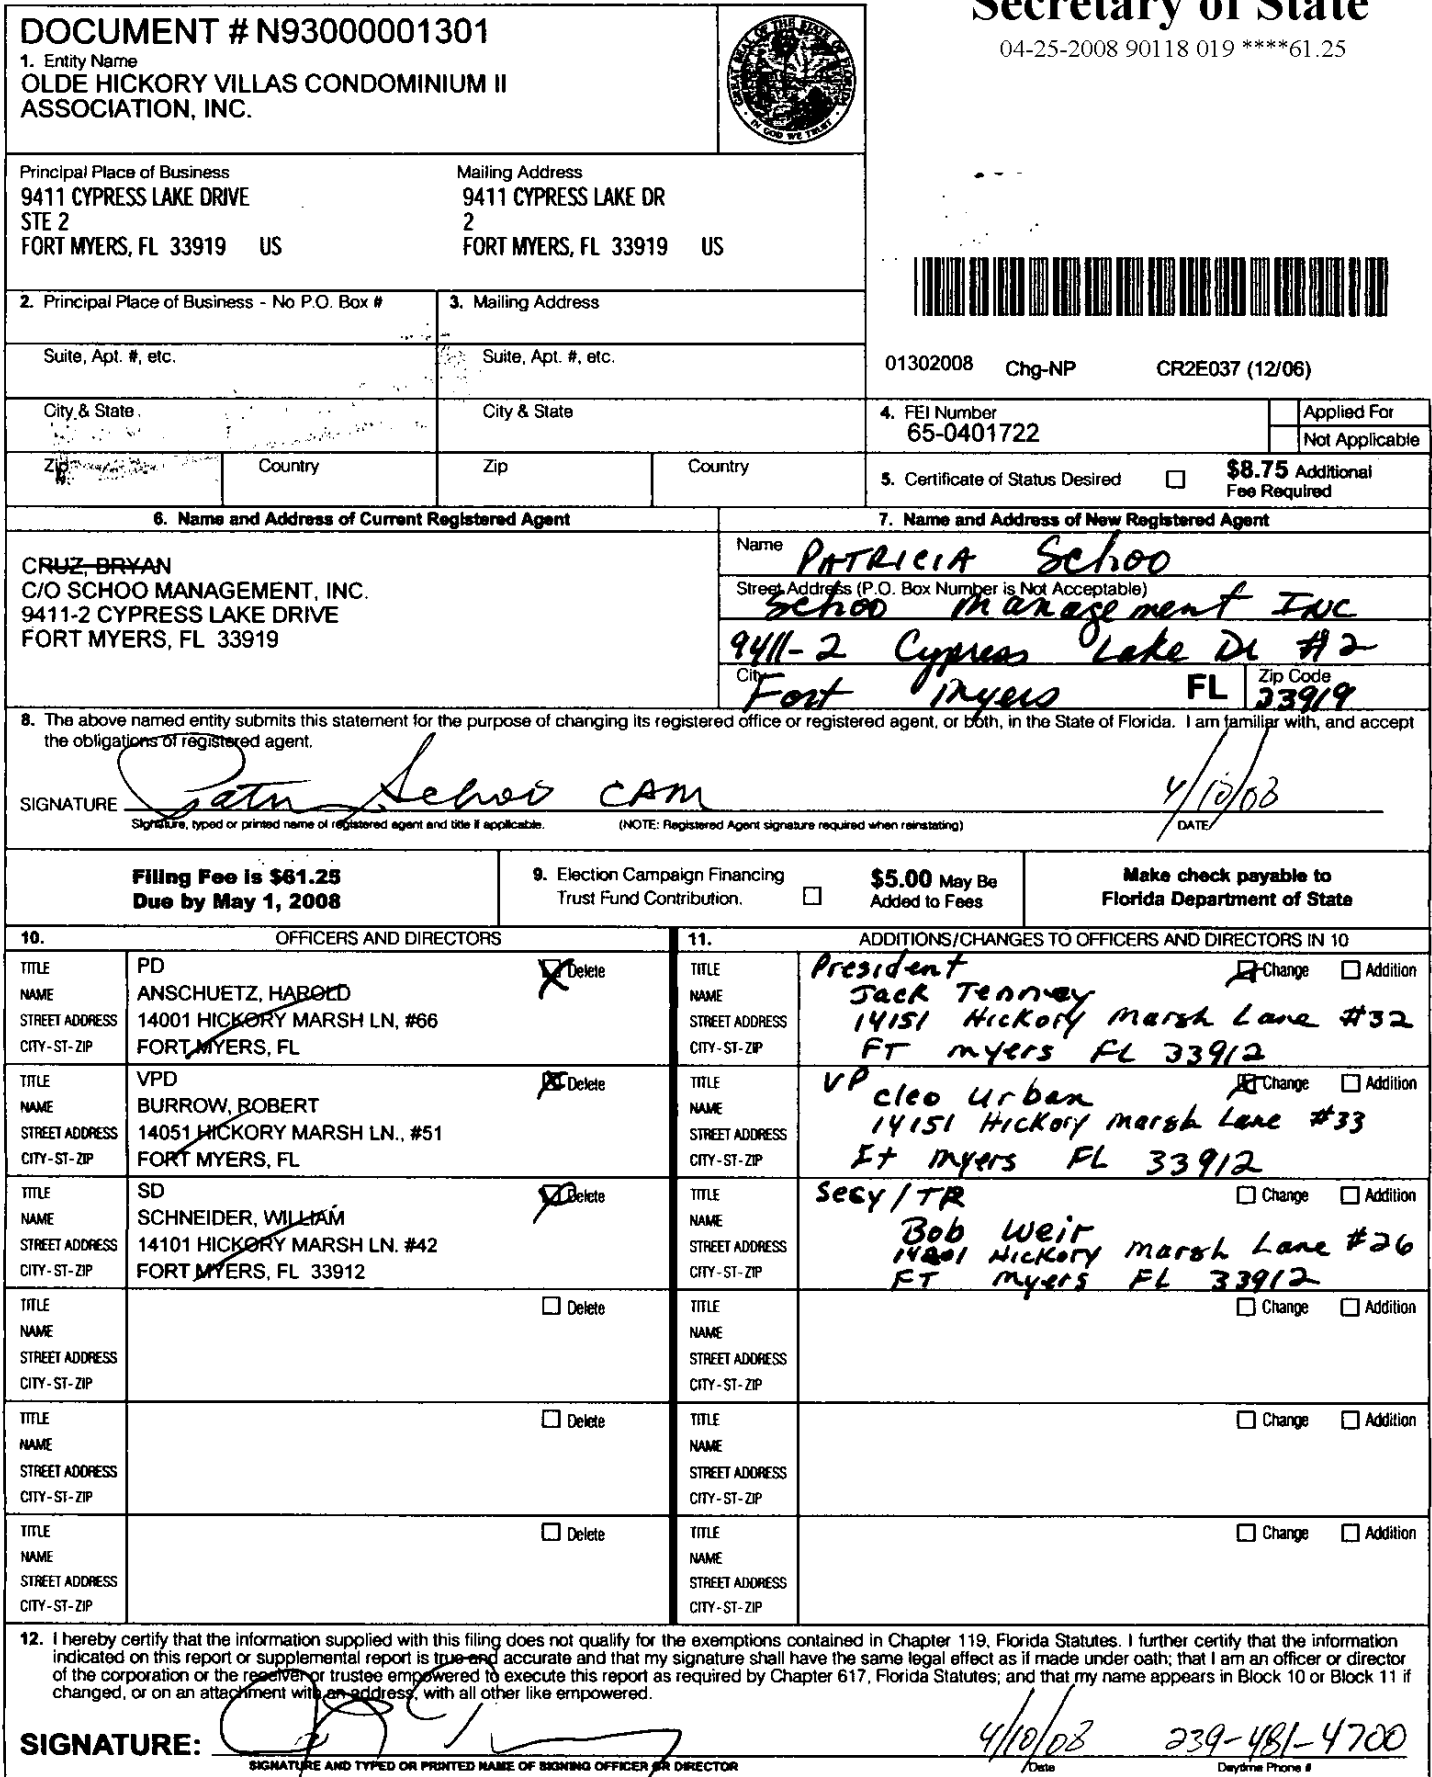 Secretary of State
04-25-2008 90118 019 ****61.25
DOCUMENT # N93000001301
1. Entity Name
OLDE HICKORY VILLAS CONDOMINIUM II
ASSOCIATION, INC.
GREAT SEAL OF THE STATE OF FLORIDA
IN GOD WE TRUST
Principal Place of Business
9411 CYPRESS LAKE DRIVE
STE 2
FORT MYERS, FL 33919 US
Mailing Address
9411 CYPRESS LAKE DR
2
FORT MYERS, FL 33919 US
2. Principal Place of Business - No P.O. Box #
3. Mailing Address
Suite, Apt. #, etc.
Suite, Apt. #, etc.
City & State
City & State
Zip Country
Zip Country
01302008 Chg-NP CR2E037 (12/06)
4. FEI Number
65-0401722
Applied For
Not Applicable
5. Certificate of Status Desired
$8.75 Additional
Fee Required
6. Name and Address of Current Registered Agent
CRUZ, BRYAN
C/O SCHOO MANAGEMENT, INC.
9411-2 CYPRESS LAKE DRIVE
FORT MYERS, FL 33919
7. Name and Address of New Registered Agent
Name PATRICIA Schoo
Street Address (P.O. Box Number is Not Acceptable)
Schoo Management INC
9411-2 Cypress Lake Dr #2
City Fort Myers FL Zip Code 33919
8. The above named entity submits this statement for the purpose of changing its registered office or registered agent, or both, in the State of Florida. I am familiar with, and accept
the obligations of registered agent.
SIGNATURE Schoo CAM 4/10/08
Signature, typed or printed name of registered agent and title if applicable. (NOTE: Registered Agent signature required when reinstating) DATE
Filing Fee is $61.25
Due by May 1, 2008
9. Election Campaign Financing
Trust Fund Contribution.
$5.00 May Be
Added to Fees
Make check payable to
Florida Department of State
10. OFFICERS AND DIRECTORS
11. ADDITIONS/CHANGES TO OFFICERS AND DIRECTORS IN 10
TITLE PD Delete
NAME ANSCHUETZ, HAROLD
STREET ADDRESS 14001 HICKORY MARSH LN, #66
CITY-ST-ZIP FORT MYERS, FL
TITLE President Change Addition
NAME Jack Tenney
STREET ADDRESS 14151 Hickory Marsh Lane #32
CITY-ST-ZIP FT myers FL 33912
TITLE VPD Delete
NAME BURROW, ROBERT
STREET ADDRESS 14051 HICKORY MARSH LN., #51
CITY-ST-ZIP FORT MYERS, FL
TITLE VP Change Addition
NAME Cleo Urban
STREET ADDRESS 14151 Hickory Marsh Lane #33
CITY-ST-ZIP Ft myers FL 33912
TITLE SD Delete
NAME SCHNEIDER, WILLIAM
STREET ADDRESS 14101 HICKORY MARSH LN. #42
CITY-ST-ZIP FORT MYERS, FL 33912
TITLE Secy/TR Change Addition
NAME Bob Weir
STREET ADDRESS Hickory marsh Lane #26
CITY-ST-ZIP FT myers FL 33912
TITLE Delete
NAME
STREET ADDRESS
CITY-ST-ZIP
TITLE Change Addition
NAME
STREET ADDRESS
CITY-ST-ZIP
TITLE Delete
NAME
STREET ADDRESS
CITY-ST-ZIP
TITLE Change Addition
NAME
STREET ADDRESS
CITY-ST-ZIP
TITLE Delete
NAME
STREET ADDRESS
CITY-ST-ZIP
TITLE Change Addition
NAME
STREET ADDRESS
CITY-ST-ZIP
12. I hereby certify that the information supplied with this filing does not qualify for the exemptions contained in Chapter 119, Florida Statutes. I further certify that the information
indicated on this report or supplemental report is true and accurate and that my signature shall have the same legal effect as if made under oath; that I am an officer or director
of the corporation or the receiver or trustee empowered to execute this report as required by Chapter 617, Florida Statutes; and that my name appears in Block 10 or Block 11 if
changed, or on an attachment with an address, with all other like empowered.
SIGNATURE: 4/10/08 239-481-4700
SIGNATURE AND TYPED OR PRINTED NAME OF SIGNING OFFICER OR DIRECTOR Date Daytime Phone #